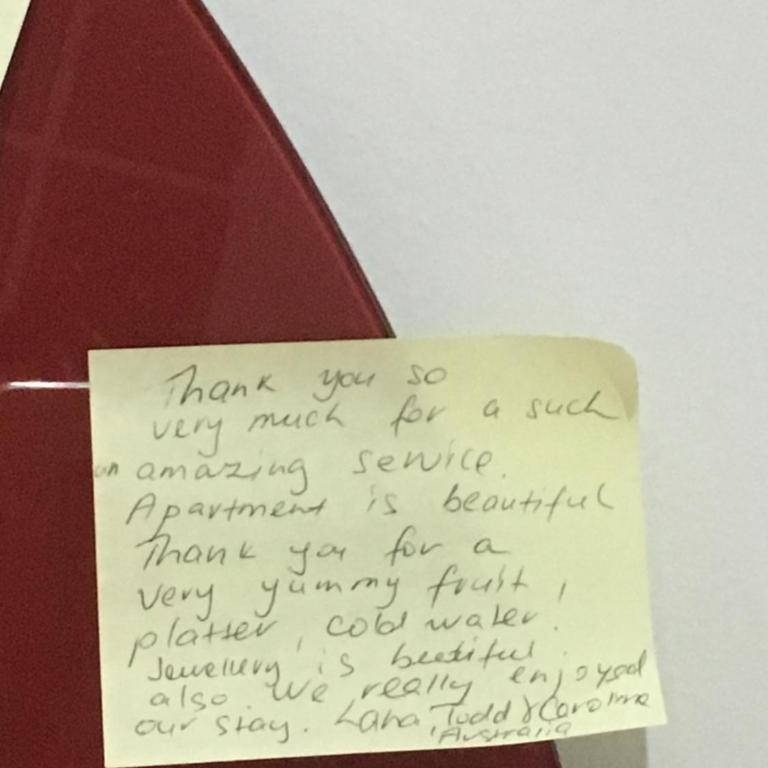 Thank you so
very much for a such
an amazing service.
Apartment is beautiful
Thank you for a
very yummy fruit
platter, cold water!
Jewellery is beetiful.
also. We really enjoyed
our stay. Lana, Todd & Carolina
Australia